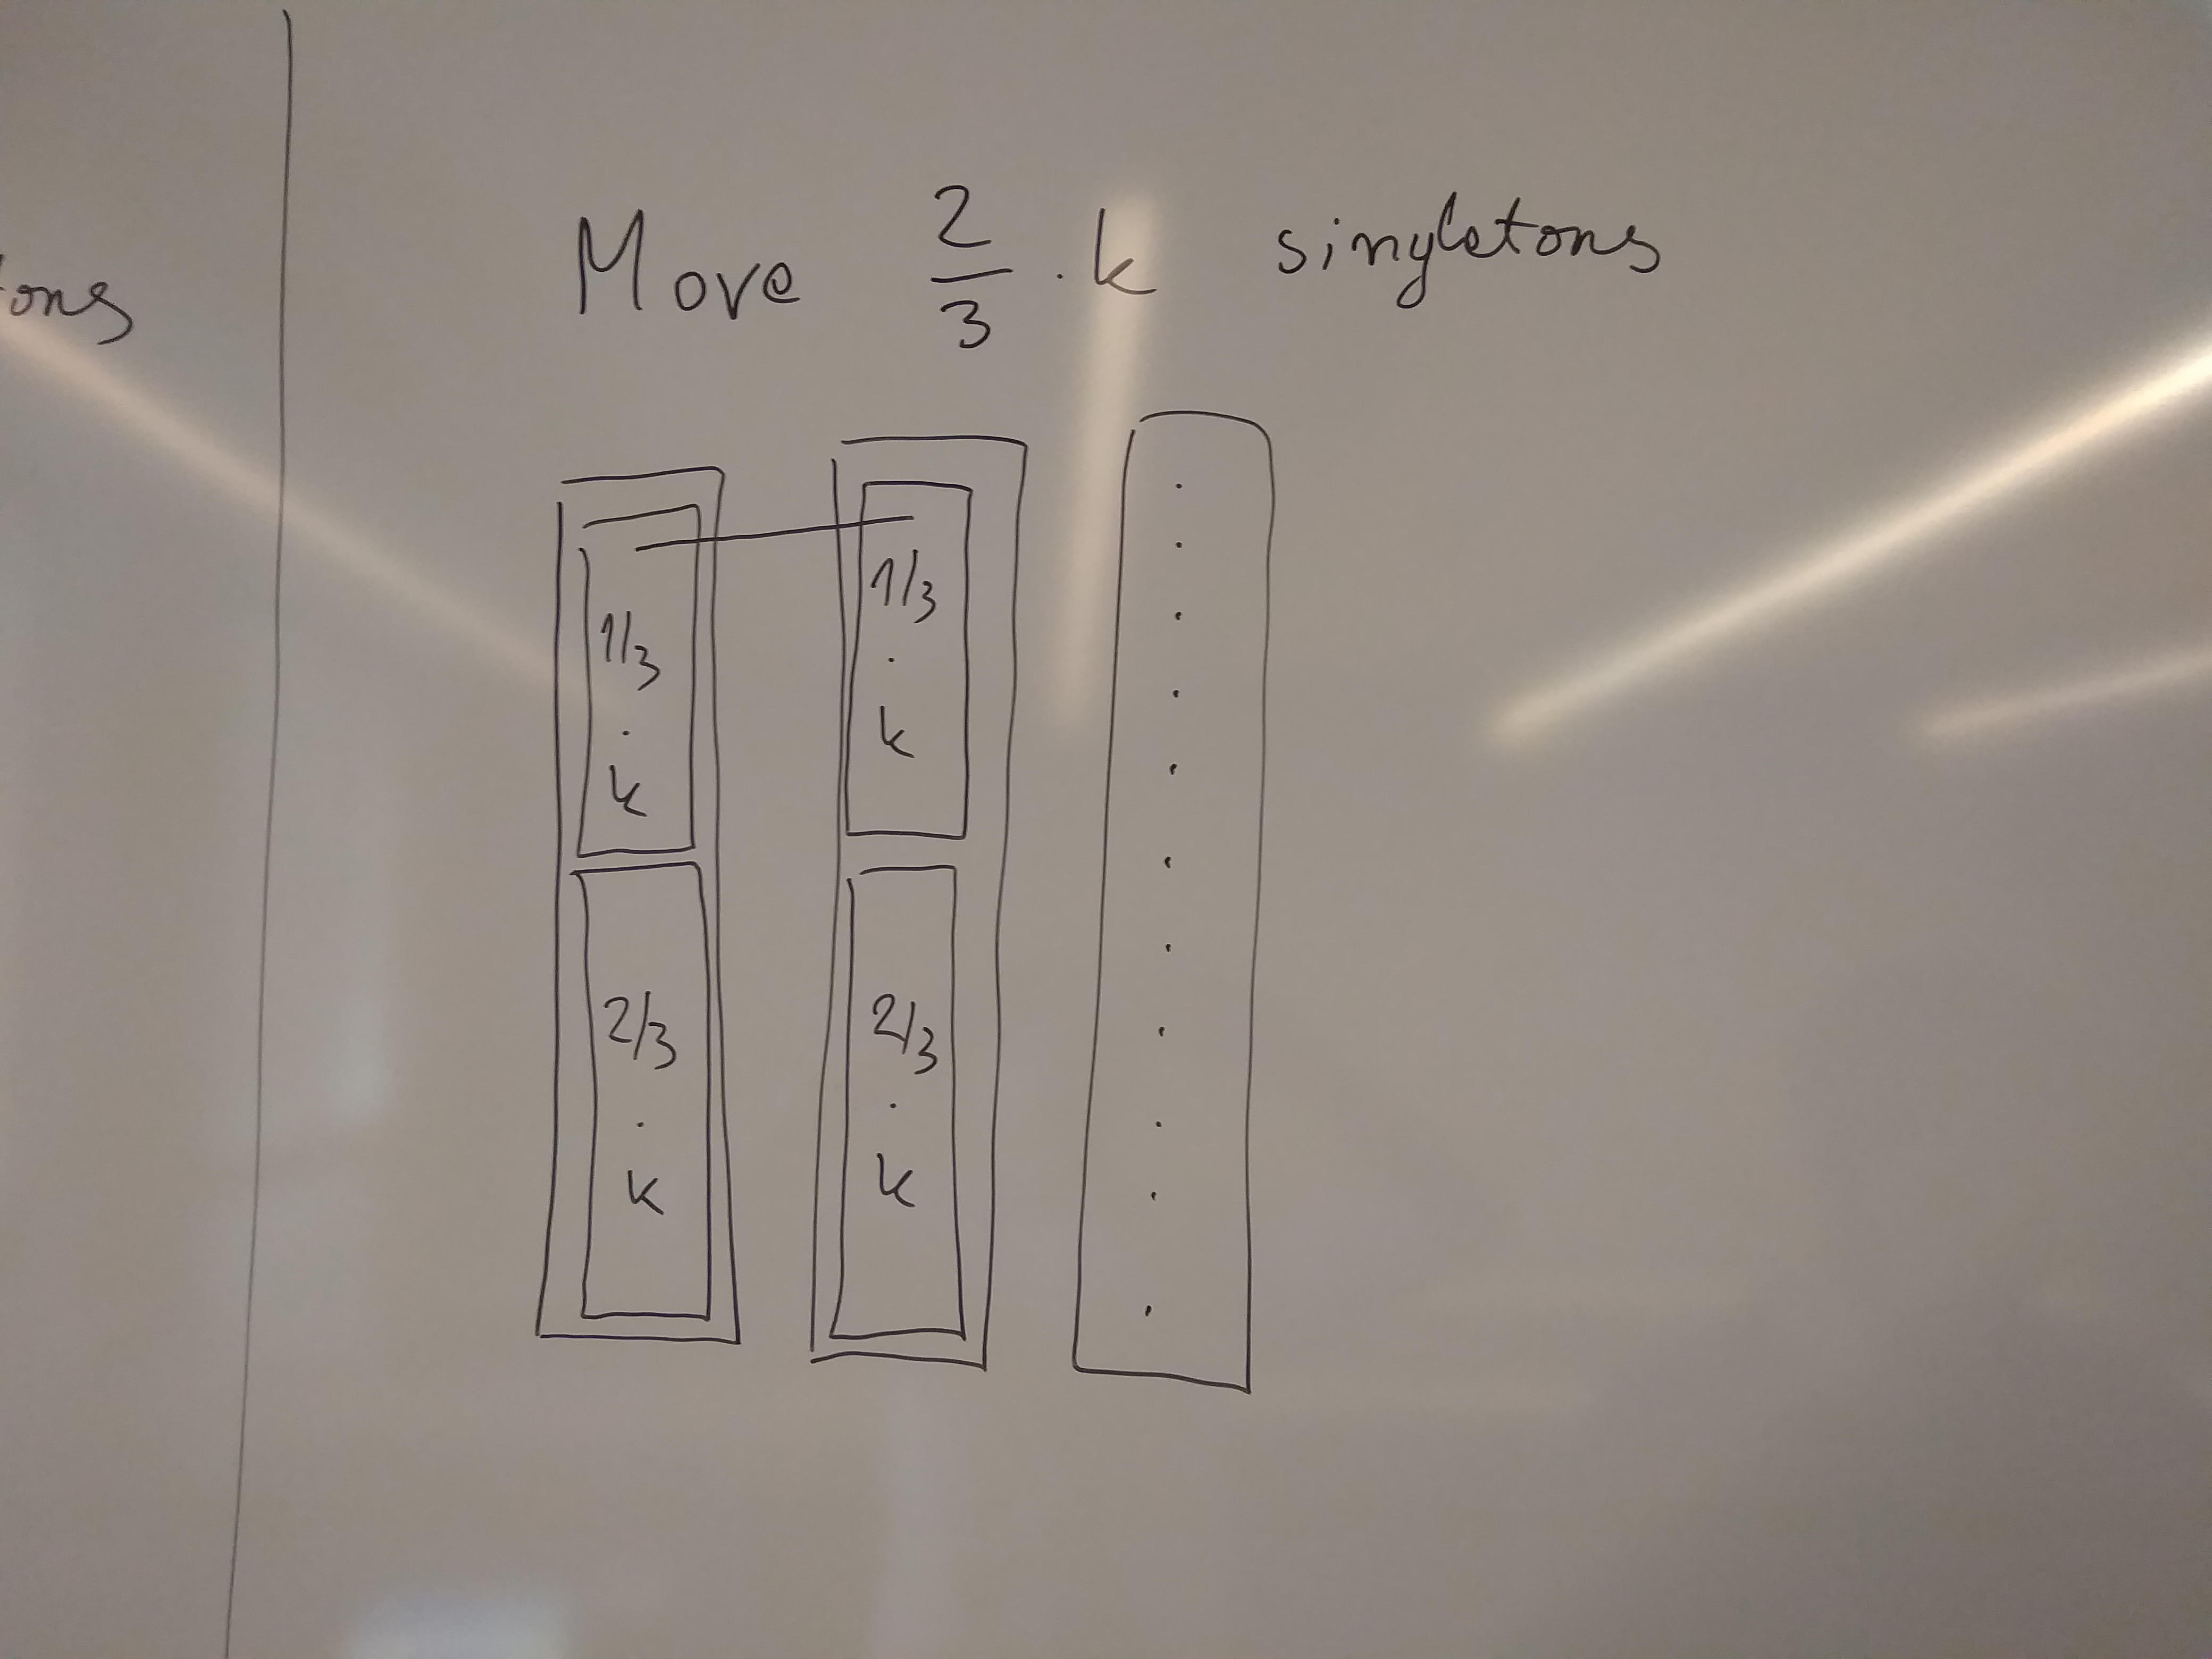 ons
Move 2/3 · k singletons
1/3
·
k
1/3
·
k
2/3
·
k
2/3
·
k